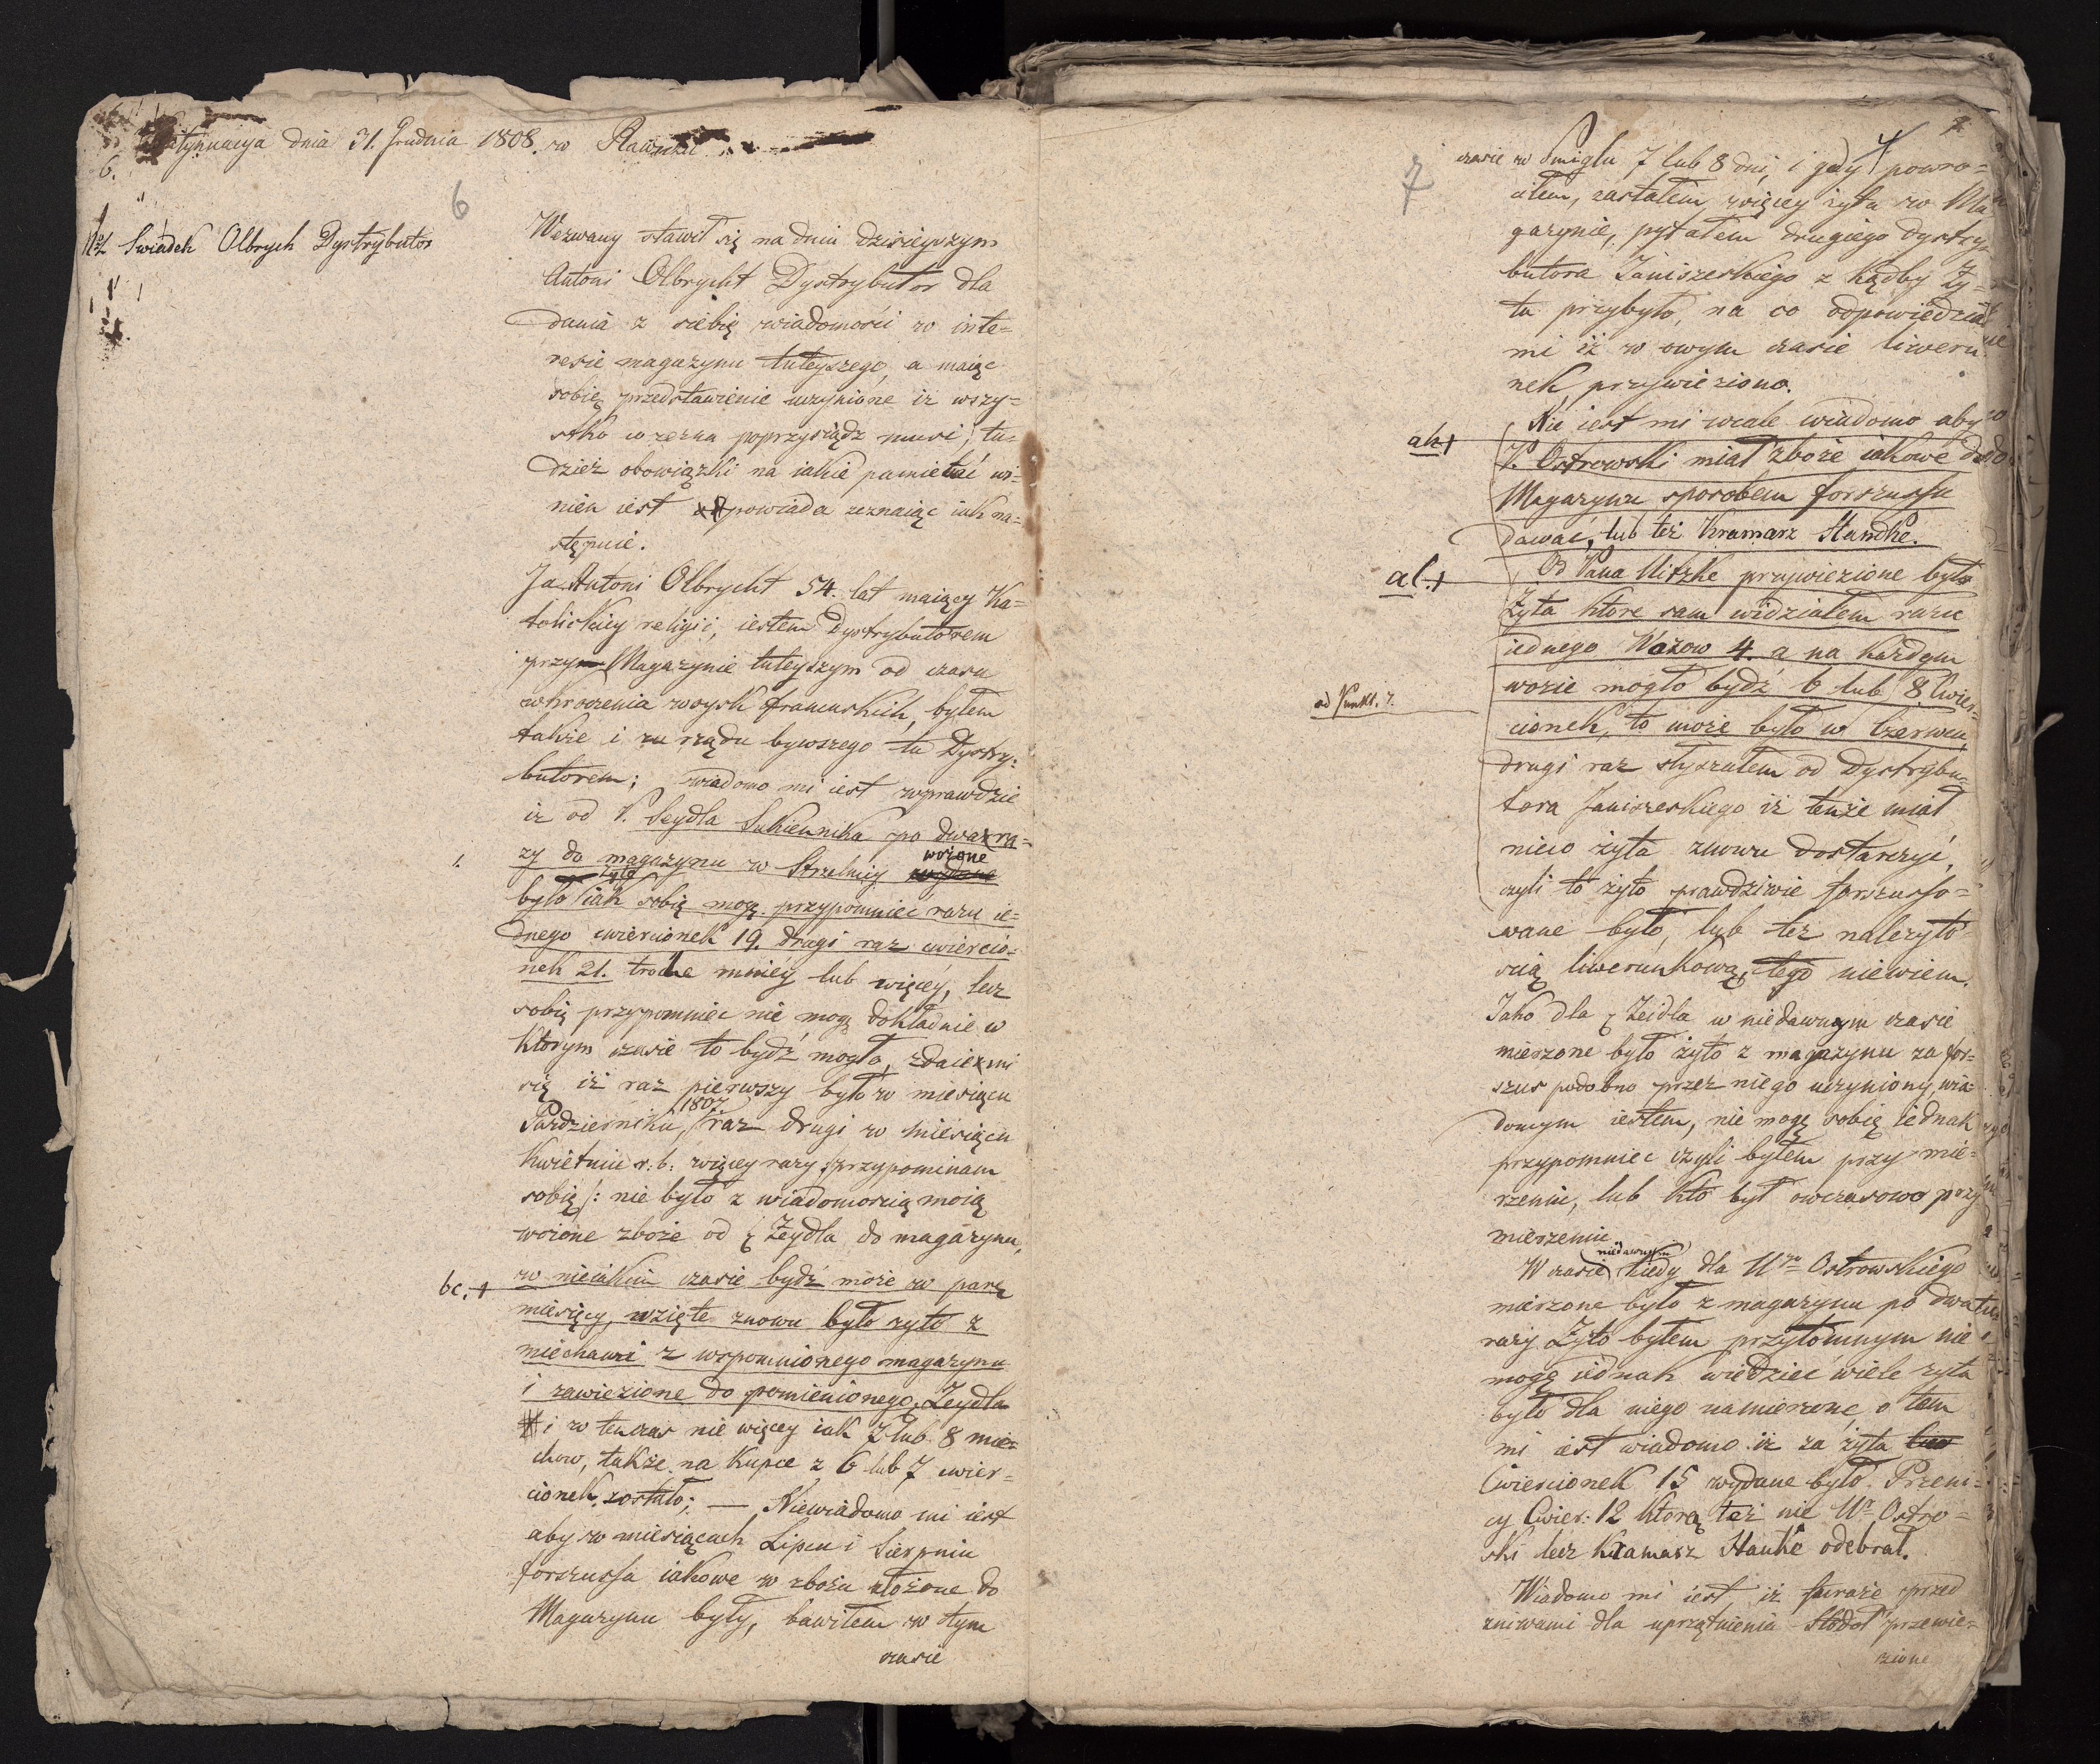 dnia 31. Grudnia 1808. w Rawiczu
6.
6
Swiadek Olbrych Dystrybutor
Wezwany stawił się na dniu dzisieyszym
Antoni Olbrycht Dystrybutor dla
dania z siebię wiadomości w inte=
resie magazynu tuteyszego, a maiąc
sobię przedstawienie uczynióne iż wszy=
stko co zezna poprzysiądz musi, tu=
dzież obowiązki na iakie pamietać wi=
nien iest powiada zeznaiąc iak na=
stępuie.
Ja Antoni Olbrycht 54. lat maiący Ka=
tolickiey religii, iestem Dystrybutorem
przy Magazynie tuteyszym od czasu
wkroczenia woysk francuskich, byłem
także i za rządu bywszego tu Dystry=
butorem; wiadomo mi iest wprawdzie
iż od P. Seydla Sukiennika po dwa ra=
1.
zy do magazynu w Strzelnicy wożone
było żyto iak sobię mogę przypomnieć razu ie=
dnego cwiercionek 19. drugi raz cwiercio=
nek 21. troche mniey lub więcey, lecz
sobię przypomniec nie mogę dokładnie w
ktorym czasie to bydź mogło, zdaie mi
się iż raz pierwszy było w miesiącu
Pazdzierniku 1807. raz drugi w miesiącu
Kwietniu r: b: więcey razy przypominam
sobię /: nie było z wiadomoscią moią
wożone zboże od Zeydla do magazynu,
bc. +
w nieiakim czasie bydź może w parę
miesięcy, wzięte znowu było żyto z
miechami z wspomnionego magazynu
i zawiezione do pomienionego Zeydla
i w tenczas nie więcey iak 7 lub 8 mie=
chow, także na kupce z 6 lub 7 cwier=
cionek zostało; — Niewiadomo mi iest
aby w miesiącach Lipcu i Sierpniu
forszussa iakowe w zbożu złożone do
Magazynu były, bawiłem w tym
czasie
7
czasie w Smiglu 7 lub 8 dni, i gdy powro=
ciłem, zastałem więcey żyta w Ma
gazynie, pytałem drugiego Dystry=
butora Janiszeskiego z kądby Ży=
ta przybyło, na co odpowiedział
mi iż w owym czasie liweru
nek przywieziono.
Nie iest mi wcale wiadomo aby
ak +
P. Ostrowski miał zboże iakowe do
Magazynu sposobem forszussu
dawać, lub też Kramarz Handke.
al. +
Od Pana Nitzke przywiezione było
Żyta ktore sam widziałem razu
iednego Wozow 4. a na każdym
wozie mogło bydź 6 lub 8 Cwier=
ad Punkt. 7.
cionek, to może było w Czerwcu,
drugi raz słyszałem od Dystrybu=
tora Janiszeskiego iż tenże miał
nieco żyta znowu dostarczyć,
czyli to żyto prawdziwie forszusso=
wane było, lub też należyto=
scią liwerunkową, tego niewiem.
Jako dla Zeidla w niedawnym czasie
mierzone było żyto z magazynu za for=
szus podobno przez niego uczyniony, wia=
domym iestem, nie mogę sobię iednak
przypomniec czyli byłem przy mie=
rzeniu, lub kto był owczasowo przy
mierzeniu.
W czasie niedawnym kiedy dla Ur. Ostrowskiego
mierzone było z magazynu po dwa
razy Żyto byłem przytomnym nie
mogę iednak wiedzieć wiele żyta
było dla niego namierzone, o tem
mi iest wiadomo iż za żyta
Cwiercionek 15 wydane było Przeni=
cy Cwier: 12 którą też nie Ur. Ostro=
ski lecz Kramarz Hanke odebrał.
Wiadomo mi iest iż furaże przed
zniwami dla uprzątnienia Stodoł przewie=
zione